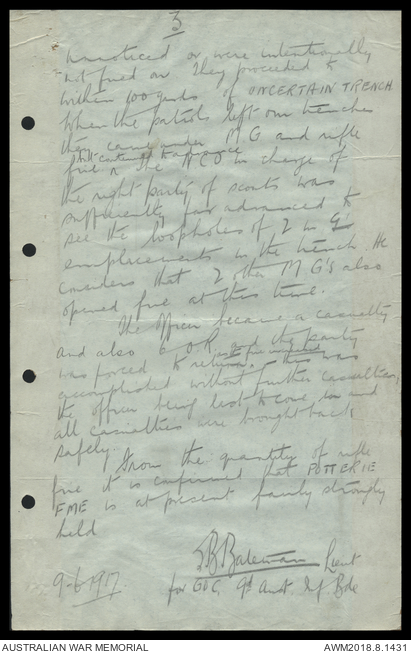 3
unnoticed or were intentionally
not fired on. They proceeded to
within 100 yards of UNCERTAIN TRENCH
When the patrols left our trenches
they came under M G and rifle
but continued to advance
fire the NCO in charge of
the right party of scouts was
sufficiently far advanced to
see the loopholes of 2 M G's
emplacements in the trench. He
considers that 2 other M G's also
opened fire at this time.
The officer became a casualty
and also OR and the party
was forced to return. This was
accomplished without further casualties,
the officer being last to come in and
all casualties were brought back
safely.
From the quantity of rifle
fire it is confirmed that POTTERIE
FME is at present fairly strongly
held
Bateman Lieut
9-6-1917 for GOC 9th Aust. Inf Bde
AUSTRALIAN WAR MEMORIAL AWM2018.8.1431